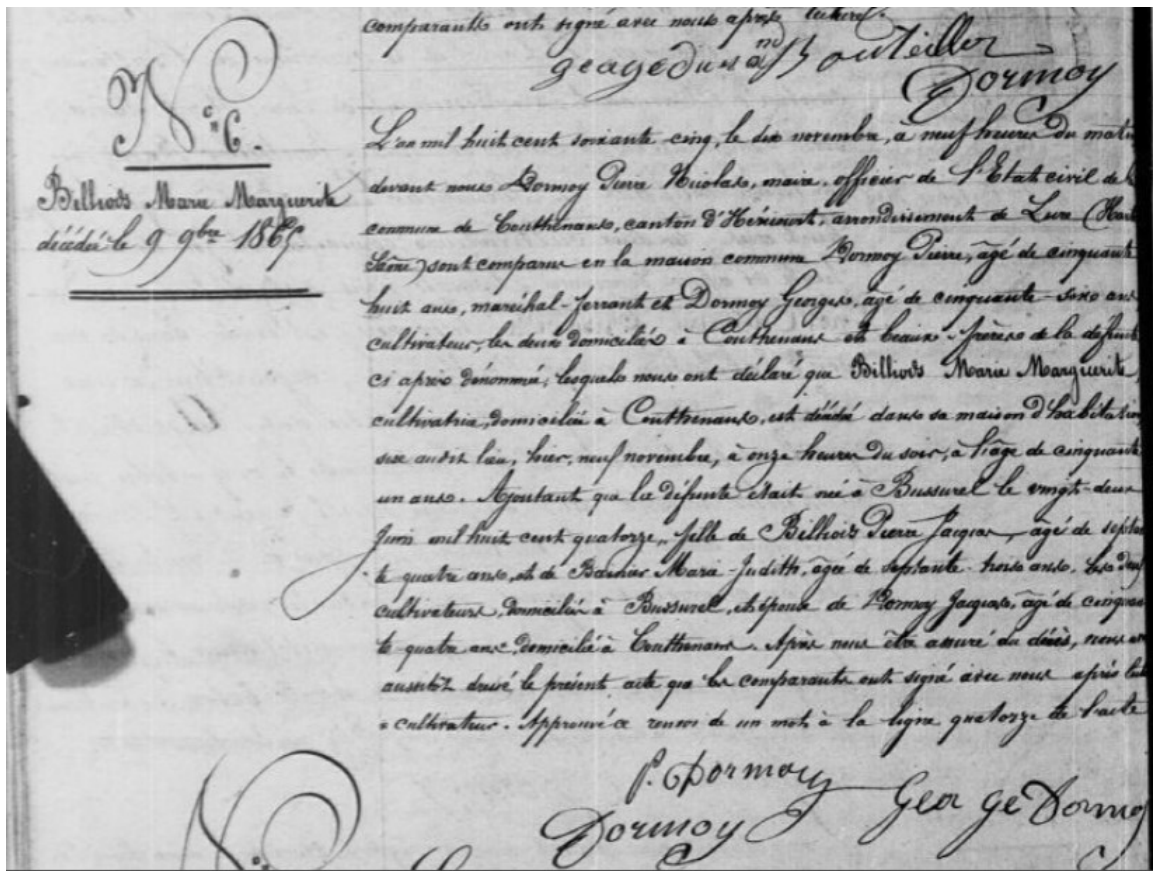 comparants ont signé avec nous après lecture.
Bouteiller
Dormoy
N° 6.
Billiods Marie Marguerite
décédée le 9 9bre 1865
L'an mil huit cent soixante-cinq, le dix novembre, à neuf heures du matin
devant nous Dormoy Pierre Nicolas, maire officier de l'Etat civil de la
commune de Couthenans, canton d'Héricourt, arrondissement de Lure (Haute
Saône) sont comparus en la maison commune Dormoy Pierre, âgé de cinquante
huit ans, maréchal-ferrant et Dormoy Georges, âgé de cinquante-six ans
cultivateur, les deux domiciliés à Couthenans et beaux-frères de la défunte
ci après dénommée, lesquels nous ont déclaré que Billiods Marie Marguerite,
cultivatrice, domiciliée à Couthenans, est décédée dans sa maison d'habitation
sise audit lieu, hier, neuf novembre, à onze heures du soir, à l'âge de cinquante
un ans. Ajoutant que la défunte était née à Bussurel le vingt-deux
Juin mil huit cent quatorze, fille de Billiods Pierre Jacques, âgé de septan
te quatre ans, et de Marie-Judith, âgée de septante-trois ans, les deux
cultivateurs, domiciliés à Bussurel, et épouse de Dormoy Jacques, âgé de cinquan
te-quatre ans, domicilié à Couthenans. Après nous être assuré du décès, nous avons
aussitôt dressé le présent acte que les comparants ont signé avec nous après lecture
cultivateur. Approuvé ce renvoi de un mot à la ligne quatorze de l'acte
P. Dormoy
Dormoy
George Dormoy
N°